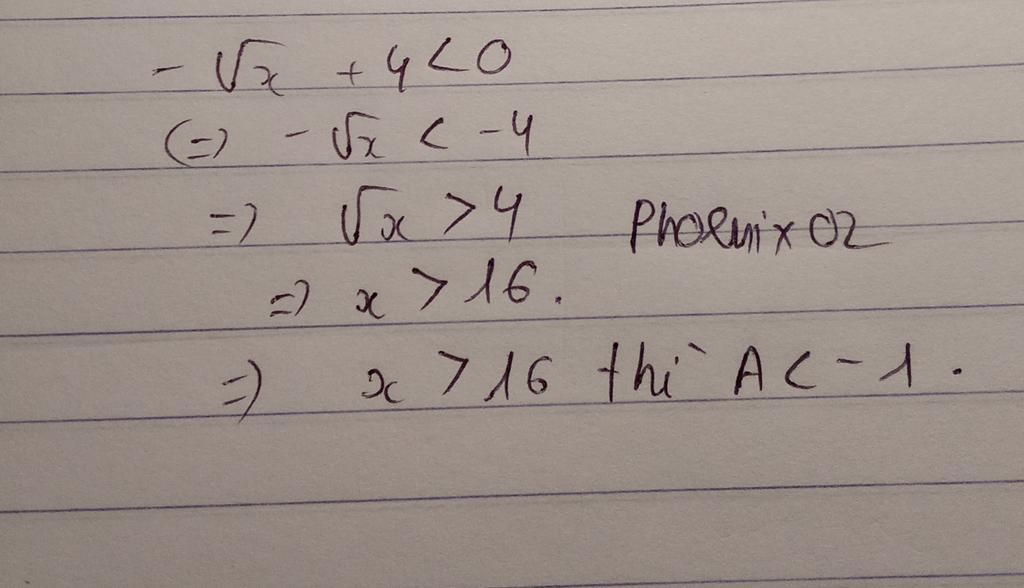 - √x + 4 < 0
(=) - √x < -4
=) √x > 4 Phoenix02
=) x > 16.
=) x > 16 thì A < -1.